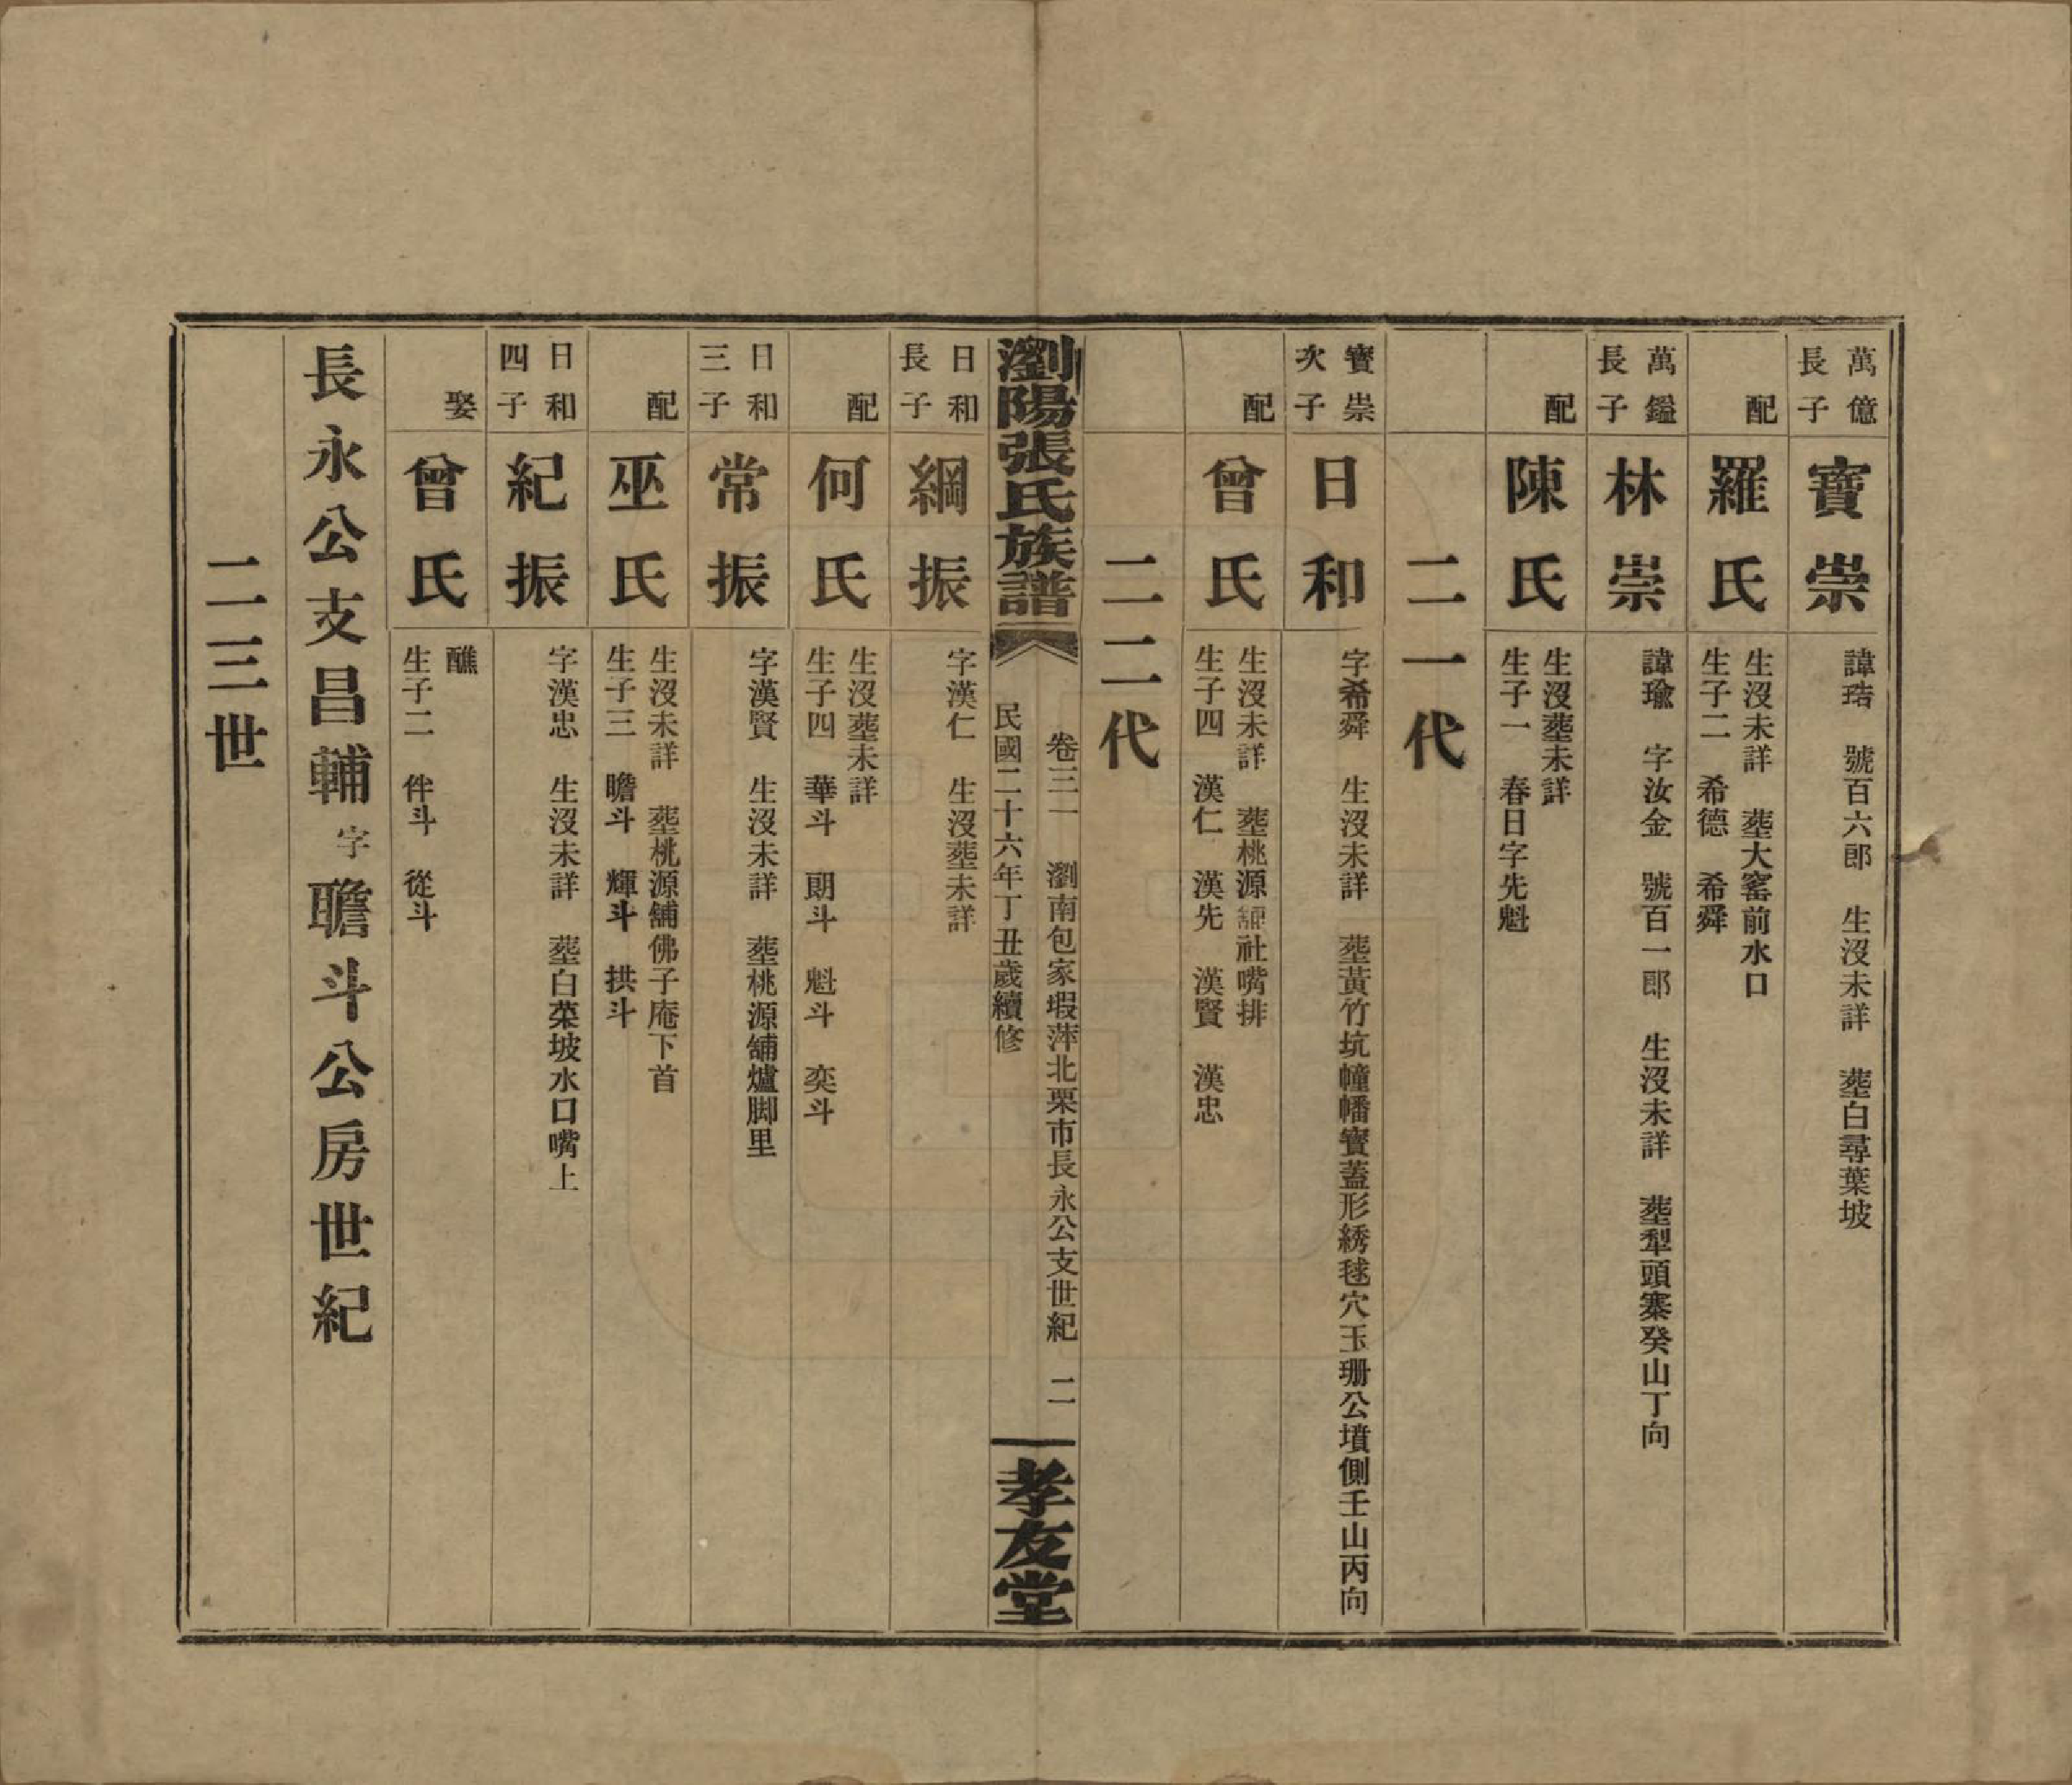 萬億
長子
寶崇
諱㻖　號百六郎　生沒未詳　塟白尋葉坡
配
羅氏
生沒未詳　塟大窰前水口
生子二　希德　希舜
萬鎰
長子
林崇
諱瑜　字汝金　號百一郎　生沒未詳　塟犁頭寨癸山丁向
配
陳氏
生沒塟未詳
生子一　春日字先魁
二一代
寶崇
次子
日和
字希舜　生沒未詳　塟黃竹坑幢幡寶蓋形綉毬穴玉珊公墳側壬山丙向
配
曾氏
生沒未詳　塟桃源社嘴排
生子四　漢仁　漢先　漢賢　漢忠
二二代
瀏陽張氏族譜
卷三一　瀏南包家塅萍北栗市長永公支世紀　二
民國二十六年丁丑歲續修
孝友堂
日和
長子
綱振
字漢仁　生沒塟未詳
配
何氏
生沒塟未詳
生子四　華斗　朗斗　魁斗　奕斗
日和
三子
常振
字漢賢　生沒未詳　塟桃源舖爐脚里
配
巫氏
生沒未詳　塟桃源舖佛子庵下首
生子三　瞻斗　輝斗　拱斗
日和
四子
紀振
字漢忠　生沒未詳　塟白菜坡水口嘴上
娶
曾氏
醮
生子二　伴斗　從斗
長永公支昌輔字瞻斗公房世紀
二三世